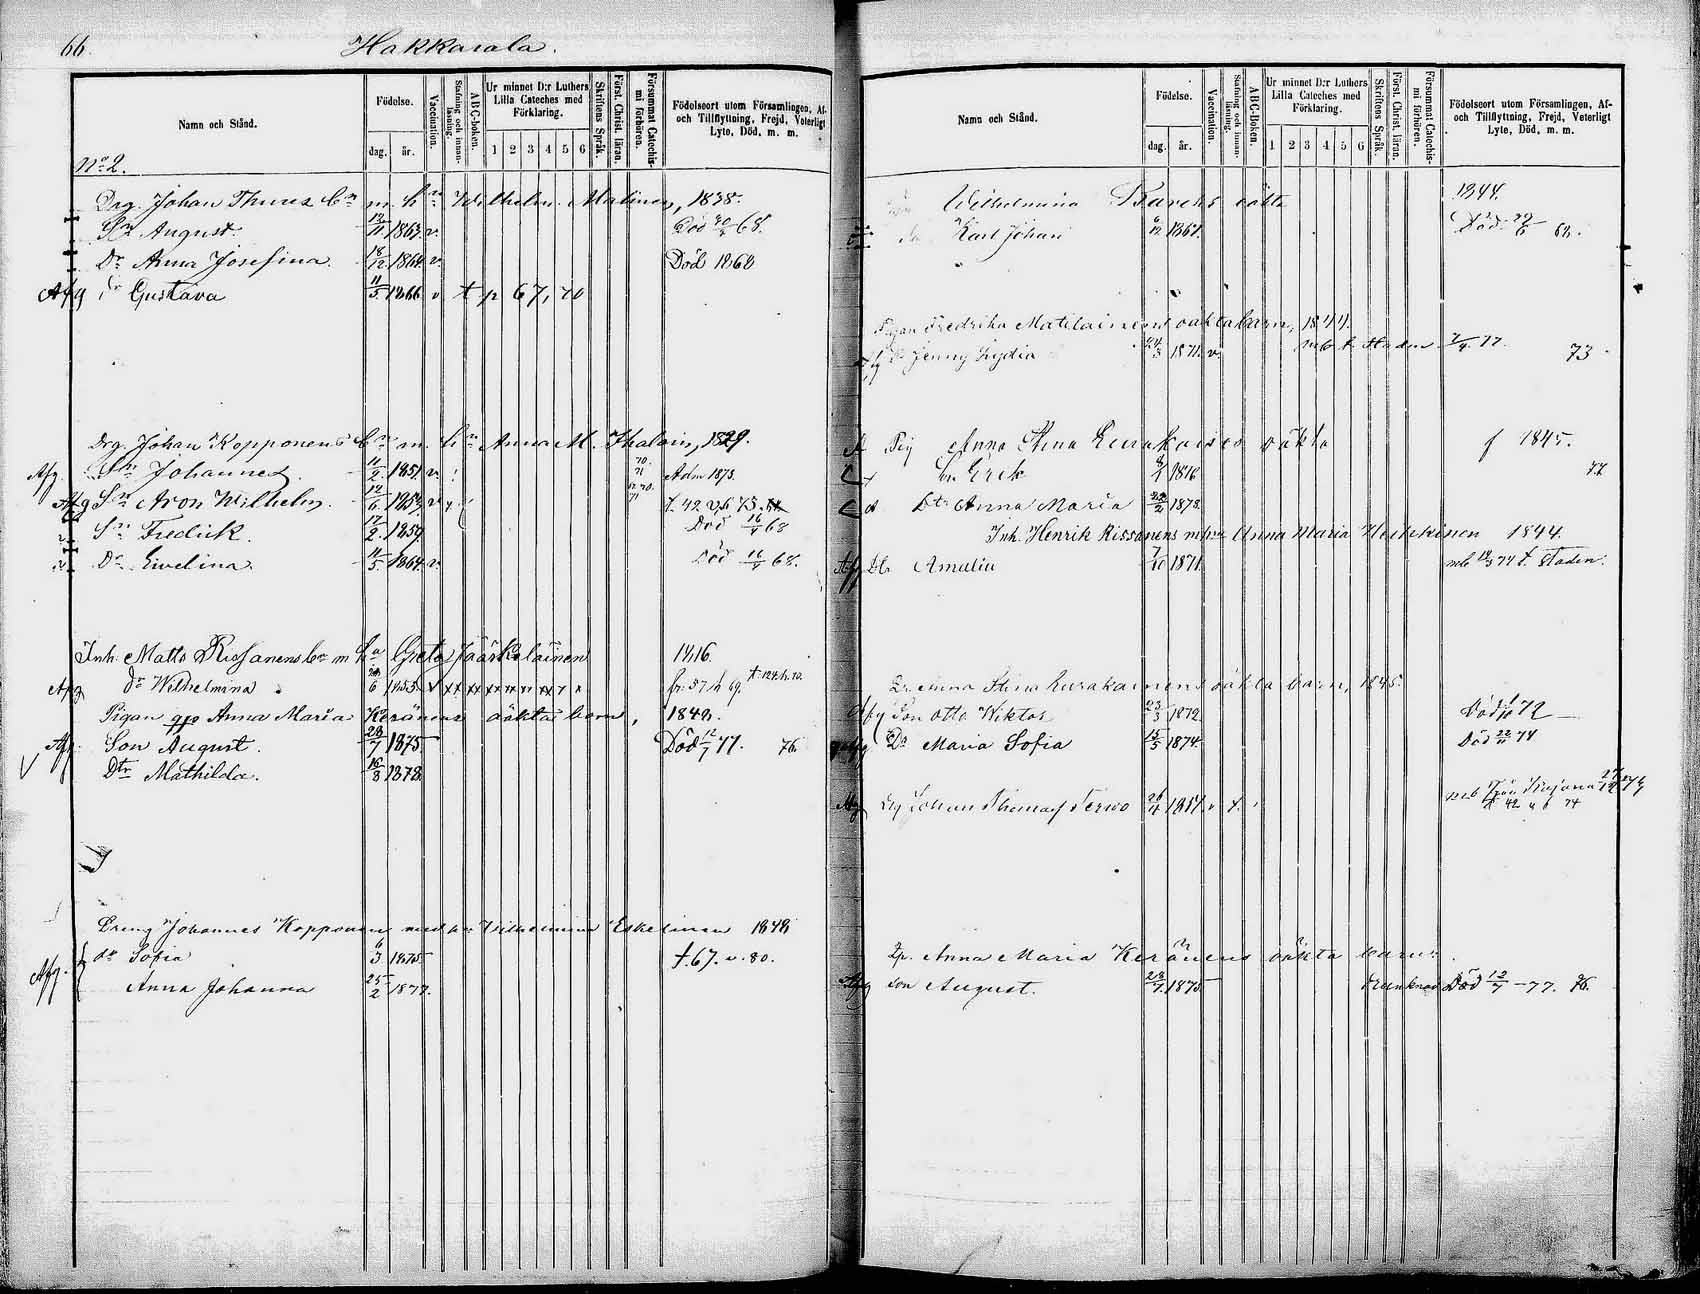 66.
Hakkarala.
Namn och Stånd.
Födelse.
dag. år.
Vaccination.
Stafning och innanläsning.
ABC-boken.
Ur minnet D:r Luthers Lilla Cateches med Förklaring.
1 2 3 4 5 6
Skriftens Språk.
Först. Christ. läran.
Försummat Catechismi förhören.
Födelseort utom Församlingen, Af- och Tillflyttning, Frejd, Veterligt Lyte, Död, m. m.
No 2.
Drg. Johan Thures bn m. hn Wilhelm. Matinen, 1838.
Sn August. 13/11 1863. v. Död 20/4 68.
Dr Anna Josefina. 18/12 1864. v. Död 1868
Afg dr Gustava 11/5 1866 v t p 67, 70
Drg. Johan Kopponens bn m. hn Anna M. Ihalain, 1829.
Afg. Sn Johannes. 11/2 1851. v. 70. 71 Adm 1873.
Afg Sn Aron Wilhelm. 12/6 1853. v 70. 71 t. 42 75.
Sn Fredrik. 17/2 1859. Död 16/4 68
Dr Evelina. 11/5 1864. v. Död 16/4 68.
Inh. Matts Rissanens bn m ha Greta Jääskeläinen 1816.
Afg dr Wilhelmina 6 1855 fr. 57 69. t. 124
Pigan Anna Maria Keränens oäkta barn, 1848.
Afg. Son August. 28/7 1875 Död 12/7 77. 76
Dtr Mathilda. 16/8 1878
Dreng Johannes Kopponen med hn Wilhelmina Eskelinen 1848
Afg. dr Sofia 6/3 1875 t. 67. v. 80.
Anna Johanna 25/2 1877.
Namn och Stånd.
Födelse.
dag. år.
Vaccination.
Stafning och innanläsning.
ABC-Boken.
Ur minnet D:r Luthers Lilla Cateches med Förklaring.
1 2 3 4 5 6
Skriftens Språk.
Först. Christ. läran.
Försummat Catechismi förhören.
Födelseort utom Församlingen, Af- och Tillflyttning, Frejd, Veterligt Lyte, Död, m. m.
Wilhelmina oäkta 1844.
Karl Johan 6/12 1867. Död 68.
Pigan Fredrika Matilainens oäkta barn, 1844.
Afg Jenny Lydia 24/3 1871. v. mb t. Staden 7/4. 77. 73
Pig Anna Stina oäkta f 1845.
Sn Erik 1876 77
Dtr Anna Maria 22/2 1878.
Inh. Henrik Rissanens m hn Anna Maria Heikkinen 1844.
Afg Dtr Amalia 7/10 1871 mb 18/3 74 t. Staden.
Anna Stina Kurakainens oäkta barn, 1845.
Afg Son Otto Wiktor 23/3 1872 Död 72
Afg Dr Maria Sofia 15/5 1874. Död 22/11 74
Afg Drg Johan Thomas Terwo 26/4 1857. v mb från Kajana 27/12 74
t 42 u b 74
Anna Maria Keränens oäkta barn.
Afg son August. 28/7. 1875 Död 12/7 -77. 76.